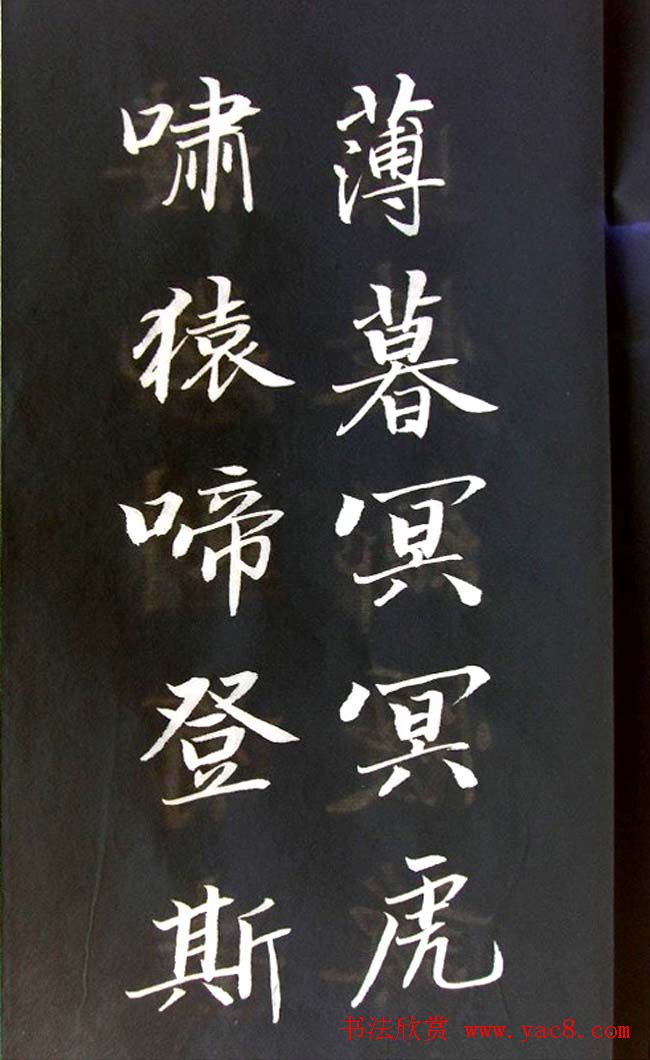 薄暮冥冥虎
啸猿啼登斯
书法欣赏 www.yac8.com